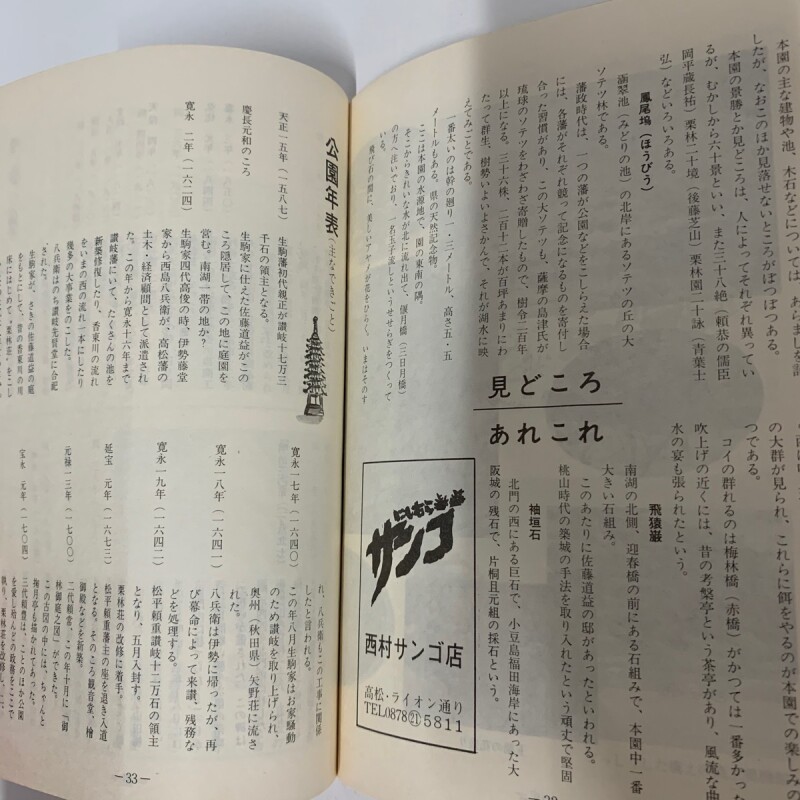 本園の主な建物や池、木石などについては、あらましを記
したが、なおこのほか見落せないところがぼつぼつある。
本園の景勝とか見どころは、人によってそれぞれ異ってい
るが、むかしから六十景といい、また三十八絶（頼恭の儒臣
岡平蔵長祐）栗林二十境（後藤芝山）栗林園二十詠（青葉士
弘）などいろいろある。
鳳尾塢（ほうびう）
涵翠池（みどりの池）の北岸にあるソテツの丘の大
ソテツ林である。
藩政時代は、一つの藩が公園などをこしらえた場合
には、各藩がそれぞれ競って記念になるものを寄付し
合った習慣があり、この大ソテツも、薩摩の島津氏が
琉球のソテツをわざわざ寄贈したもので、樹令二百年
以上になる。三十六株、二百十二本が百坪あまりにわ
たって群生、樹勢いよいよさかんで、それが湖水に映
えてみごとである。
一番太いのは幹の廻り一・三メートル、高さ五・五
メートルもある。県の天然記念物。
ここは本園の水源地で、園の東南の隅。
そこからきれいな水が北に流れ出て、偃月橋（三日月橋）
の方へ注いでおり、一名玉子流しというせせらぎをつくって
いる。
飛び石の間に、美しいアヤメが花をひらく、いまはそのす
見どころ
あれこれ
の大群が見られ、これらに餌をやるのが本園での楽しみの
つである。
コイの群れるのは梅林橋（赤橋）がかつては一番多かった
吹上げの近くには、昔の考槃亭という茶亭があり、風流な曲
水の宴も張られたという。
飛猿巌
南湖の北側、迎春橋の前にある石組みで、本園中一番
大きい石組み。
このあたりに佐藤道益の邸があったといわれる。
桃山時代の築城の手法を取り入れたという頑丈で堅固
袖垣石
北門の西にある巨石で、小豆島福田海岸にあった大
阪城の残石で、片桐且元組の採石という。
にしむら
サンゴ
西村サンゴ店
高松・ライオン通り
TEL0878㉑5811
公園年表（主なできごと）
天正一五年（一五八七）
生駒藩初代親正が讃岐十七万三
千石の領主となる。
慶長元和のころ
生駒家に仕えた佐藤道益がこの
ころ隠居して、この地に庭園を
営む。南湖一帯の地か？
寛永 二年（一六二四）
生駒家四代高俊の時、伊勢藤堂
家から西島八兵衛が、高松藩の
土木・経済顧問として派遣され
た。この年から寛永十六年まで
讃岐藩にいて、たくさんの池を
新築修復したり、香東川の流れ
をいまの西の流れ一本にしたり
幾多の大事業をのこした。
八兵衛はのち讃岐先賢堂に合祀
された。
生駒家が、さきの佐藤道益の庭
をもとにして、昔の香東川の川
床にはじめて、「栗林荘」をこし
れ、八兵衛もこの工事に関係
したと言われる。
寛永一七年（一六四〇）
この年八月生駒家はお家騒動
のため讃岐を取り上げられ、
奥州（秋田県）矢野荘に流さ
れた。
寛永一八年（一六四一）
八兵衛は伊勢に帰ったが、再
び幕命によって来讃、残務な
どを処理する。
寛永一九年（一六四二）
松平頼重讃岐十二万石の領主
となり、五月入封す。
栗林荘の改修に着手。
延宝 元年（一六七三）
松平頼重藩主の座を退き入道
となる。そのころ観音堂、檜
御殿などを新築。
元禄一三年（一七〇〇）
二代頼常、この年十月に「御
林御庭之図」ができた。
この古図の中には、ちゃんと
掬月亭も描かれてあった。
宝永 元年（一七〇四）
三代頼豊は、ことのほか公園
を愛し殆んどの政務をここで
執り、栗林荘を改修し、
—33—